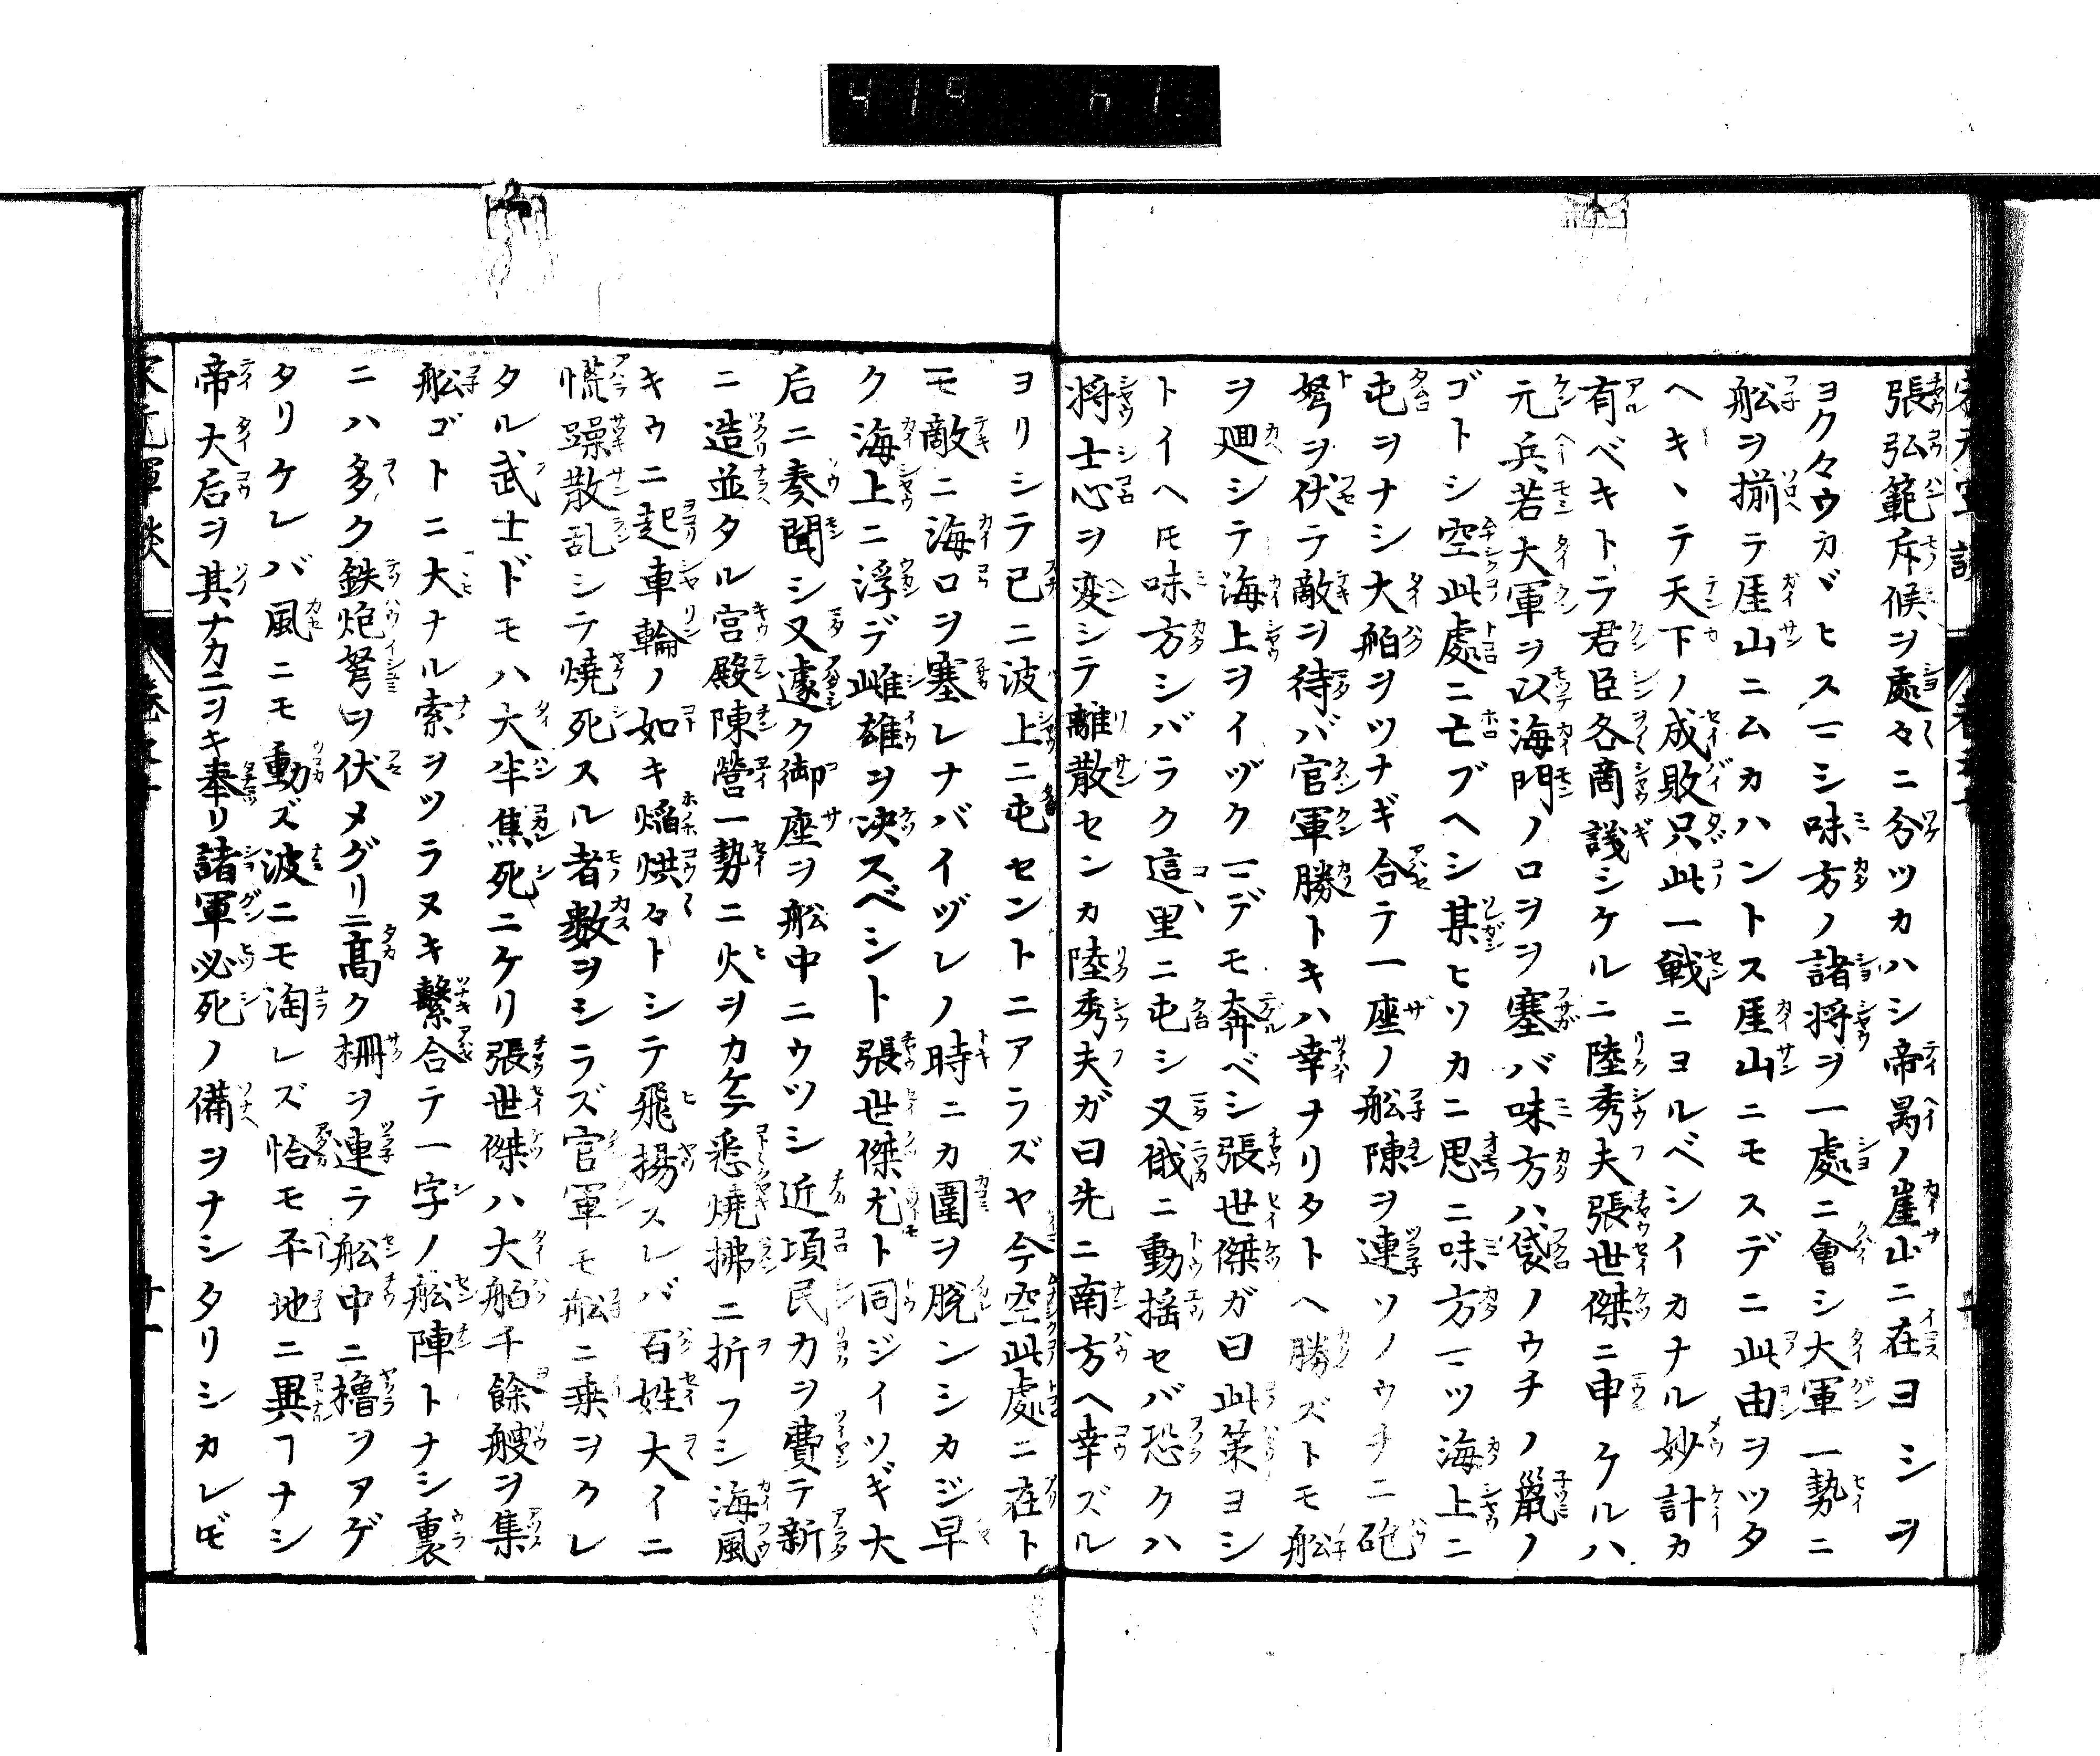 張弘範斥候ヲ處々ニ分ツカハシ帝昺ノ崖山ニ在ヨシヲ
ヨク々ウカヾヒスマシ味方ノ諸将ヲ一處ニ會シ大軍一勢ニ
舩ヲ揃テ厓山ニムカハントス厓山ニモスデニ此由ヲツタ
ヘキヽテ天下ノ成敗只此一戦ニヨルベシイカナル妙計カ
有ベキトテ君臣各商議シケルニ陸秀夫張世傑ニ申ケルハ
元兵若大軍ヲ以海門ノ口ヲヲ塞バ味方ハ袋ノウチノ鼠ノ
ゴトシ空此處ニ亡ブヘシ某ヒソカニ思ニ味方マツ海上ニ
屯ヲナシ大舶ヲツナギ合テ一座ノ舩陳ヲ連ソノウチニ砲
弩ヲ伏テ敵ヲ待バ官軍勝トキハ幸ナリタトヘ勝ズトモ舩
ヲ廻シテ海上ヲイヅクマデモ奔ベシ張世傑ガ曰此策ヨシ
トイヘ𪜈味方シバラク這里ニ屯シ又俄ニ動揺セバ恐クハ
将士心ヲ変シテ離散センカ陸秀夫ガ曰先ニ南方ヘ幸ズル
ヨリシテ已ニ波上ニ屯セントニアラズヤ今空此處ニ在ト
モ敵ニ海口ヲ塞レナバイヅレノ時ニカ圍ヲ脱ンシカジ早
ク海上ニ浮デ雌雄ヲ决スベシト張世傑尤ト同ジイソギ大
后ニ奏聞シ又遽ク御座ヲ舩中ニウツシ近項民力ヲ費テ新
ニ造並タル宮殿陳營一勢ニ火ヲカケテ悉燒拂ニ折フシ海風
キウニ起車輪ノ如キ焔烘々トシテ飛揚スレバ百姓大イニ
慌躁散乱シテ燒死スル者數ヲシラズ官軍モ舩ニ乗ヲクレ
タル武士ドモハ大半焦死ニケリ張世傑ハ大舶千餘艘ヲ集
舩ゴトニ大ナル索ヲツラヌキ繫合テ一字ノ舩陣トナシ裏
ニハ多ク鉄炮弩ヲ伏メグリニ高ク柵ヲ連テ舩中ニ櫓ヲアゲ
タリケレバ風ニモ動ズ波ニモ淘レズ恰モ平地ニ異ヿナシ
帝大后ヲ其ナカニヲキ奉リ諸軍必死ノ備ヲナシタリシカレ𪜈
宋元軍談
十一